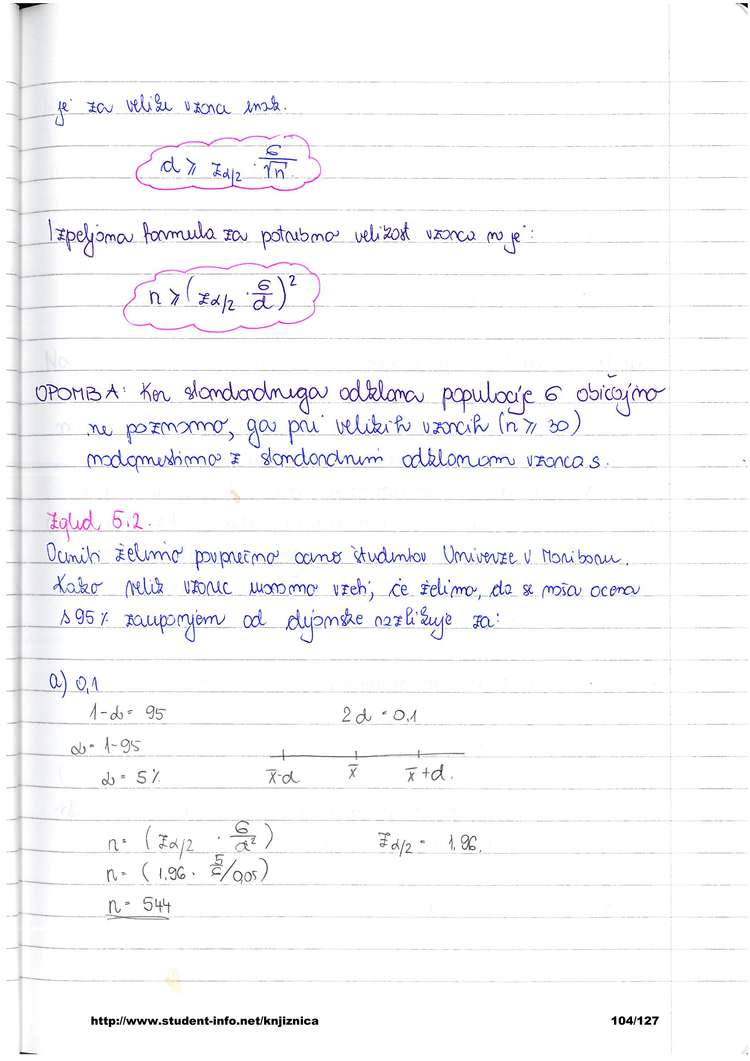 je za velike vzorce enak.
d ≥ z α/2 · σ/√n.
Izpeljana formula za potrebno velikost vzorca pa je:
n ≥ (z α/2 · σ/d)²
OPOMBA: Ker standardnega odklona populacije σ običajno
ne poznamo, ga pri velikih vzorcih (n ≥ 30)
nadomestimo z standardnim odklonom vzorca s.
Zgled 5.2.
Oceniti želimo povprečno oceno študentov Univerze v Mariboru.
Kako velik vzorec moramo vzeti, če želimo, da se naša ocena
s 95% zaupanjem od dejanske razlikuje za:
a) 0,1
1-α = 95 2d = 0,1
α = 1-95
α = 5% x̄-d x̄ x̄+d.
n = (z α/2 · σ/d²) z α/2 = 1.96.
n = (1.96 · /0,05)
n = 544
http://www.student-info.net/knjiznica 104/127